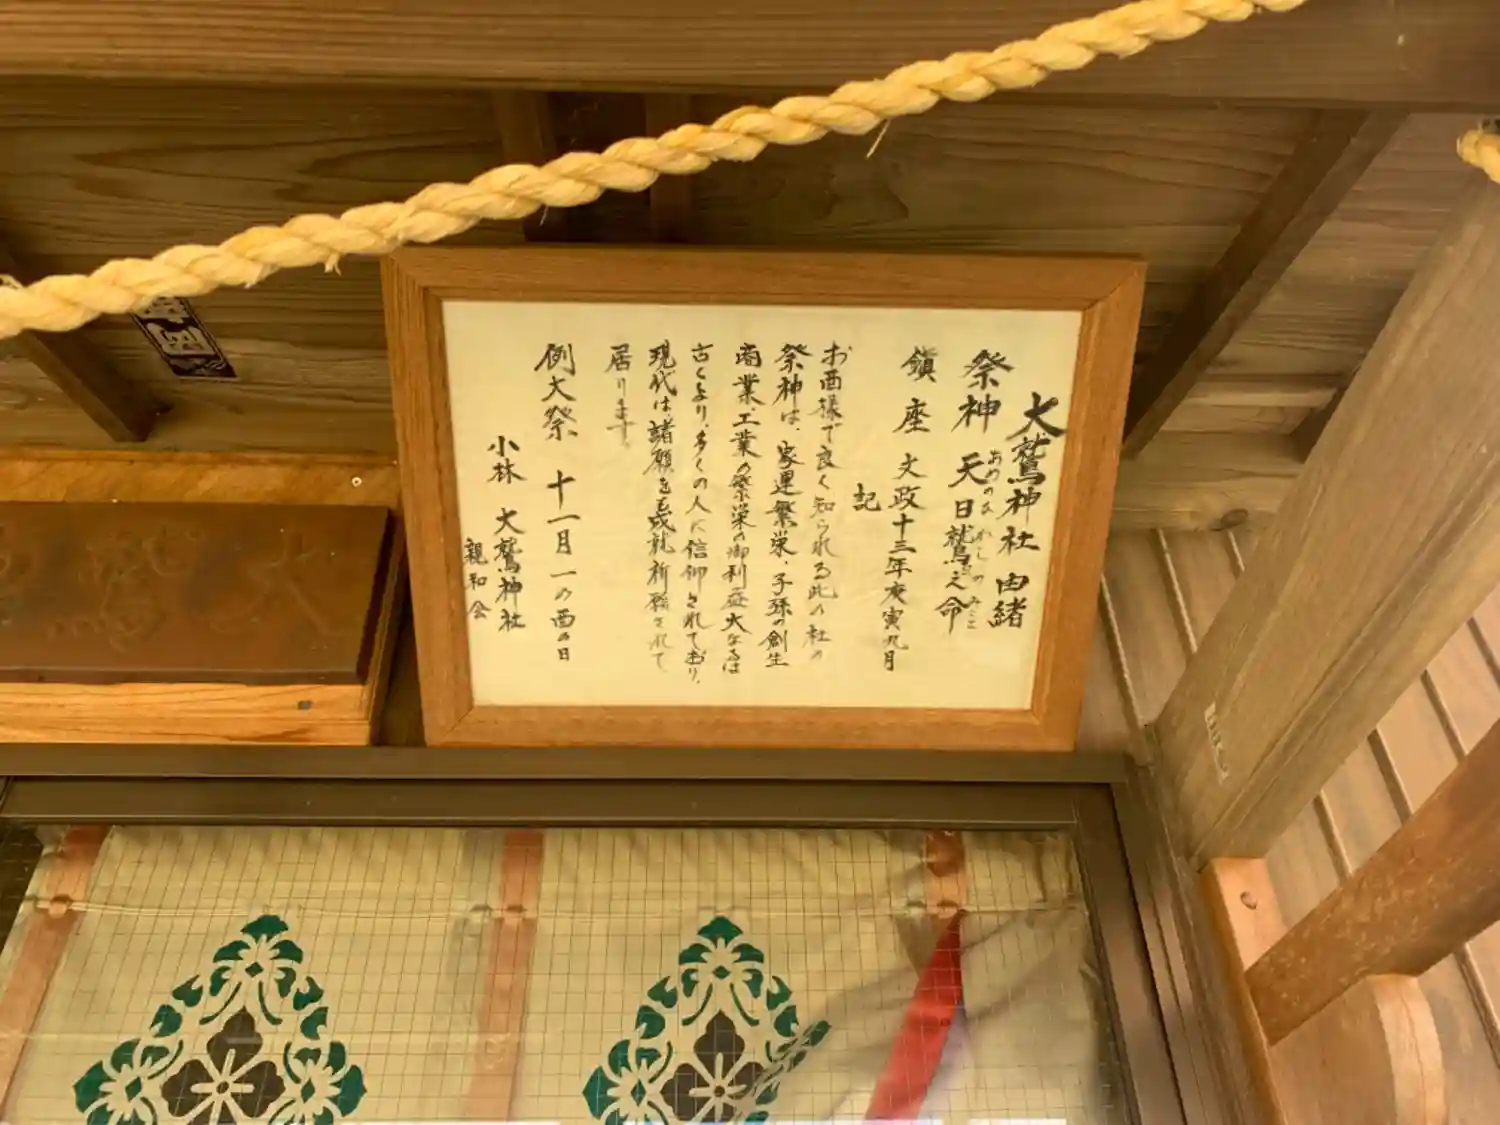 大鷲神社 由緒
祭神 天日鷲之命
あめのひ わしのみこと
鎮座 文政十三年庚寅九月
記
お酉様で良く知られる此の社の
祭神は、家運繁栄、子孫の創生
商業、工業の繁栄の御利益大なるは
古くより、多くの人に信仰されており、
現代は、諸願を成就祈願されて
居ります。
例大祭 十一月 一の酉の日
小林 大鷲神社
親和会